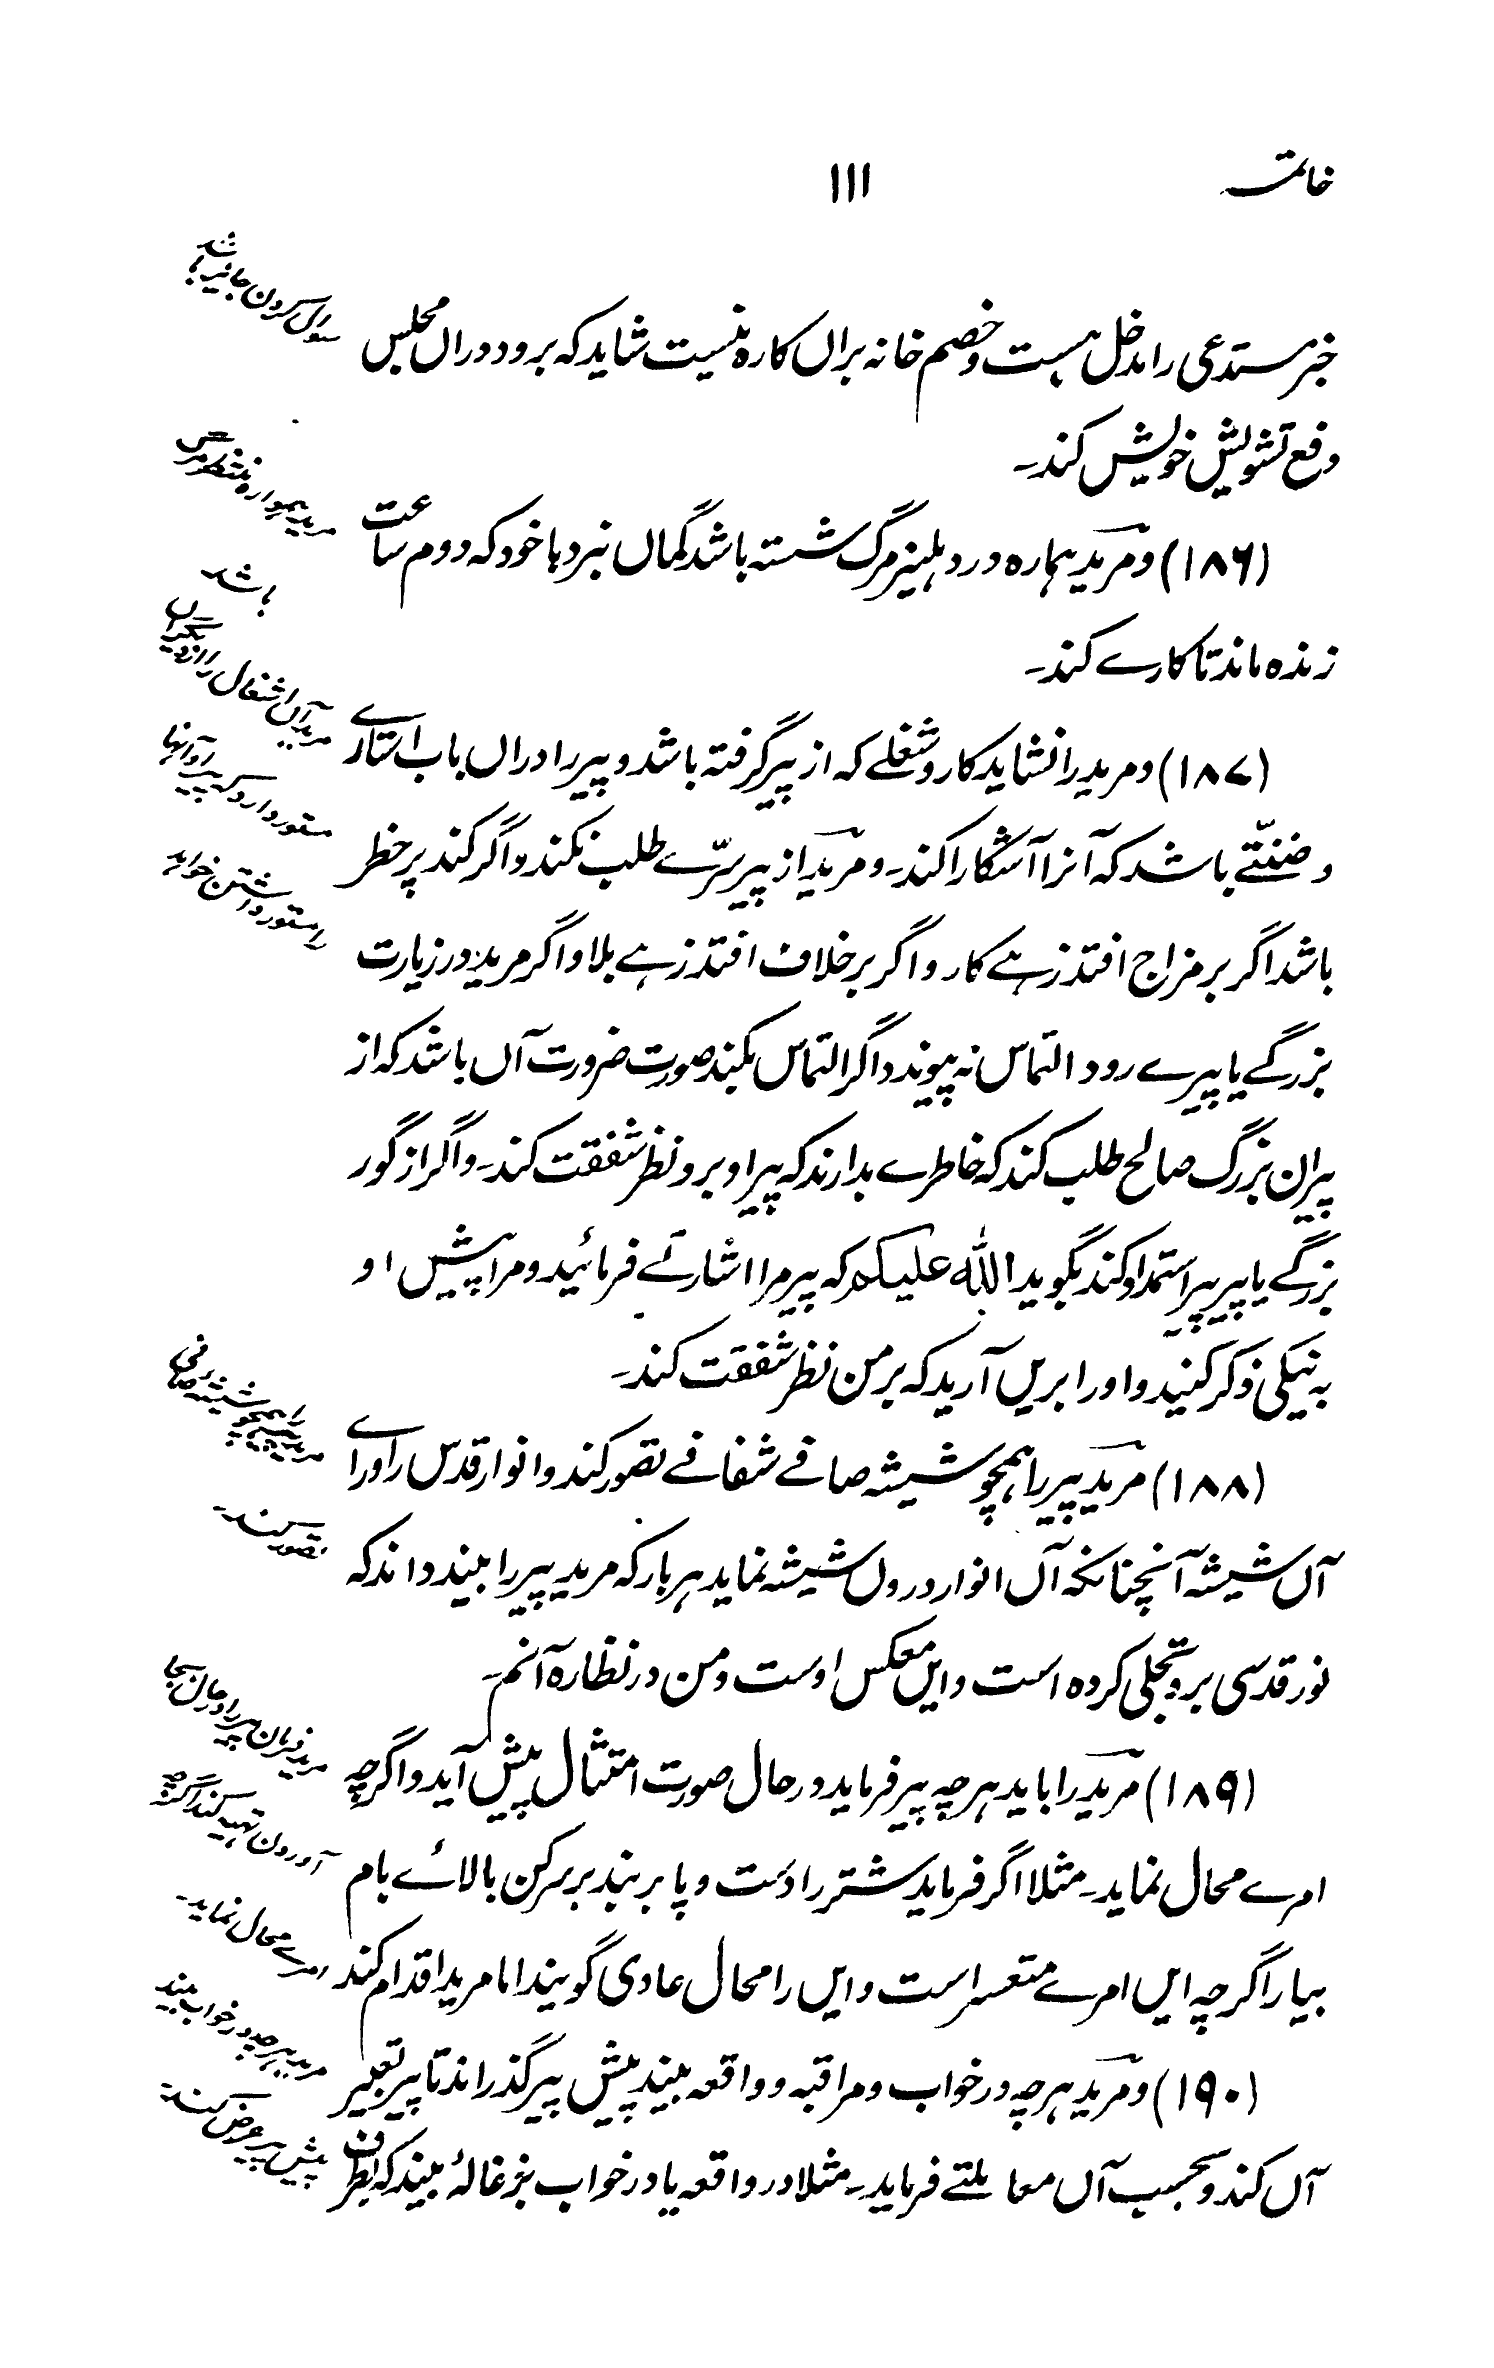 خاتمہ
۱۱۱
خبر مستدعی را مدخل ہست و خصم خانہ براں کارہ نیست شاید کہ برود دراں مجلس
دفع تشویش خویش کند۔
(۱۸۶) و مرید ہمارہ در دہلیز مرگ نشستہ باشد گماں نبرد با خود کہ دوم ساعت
زندہ ماند تا کارے کند۔
(۱۸۷) و مرید را نشاید کار و شغلے کہ از پیر گرفتہ باشد و پیر را دراں باب استارے
و ضنّتے باشد کہ آنرا آشکارا کند۔ و مرید از پیر سرّے طلب نکند و اگر کند پر خطر
باشد اگر بر مزاج افتد زہے کار و اگر بر خلاف افتد زہے بلا و اگر مرید در زیارت
بزرگے یا پیرے رود التماس نہ پیوندد اگر التماس بکند صورت ضرورت آں باشد کہ از
پیران بزرگ صالح طلب کند کہ خاطرے بدارند کہ پیر او برو نظر شفقت کند۔ و اگر از گور
بزرگے یا پیر پیر استمداد کند بگوید اللہ علیکم کہ پیر مرا اشارتے فرمائید و مرا پیش او
بہ نیکی ذکر کنید و او را بریں آرید کہ بر من نظر شفقت کند۔
(۱۸۸) مرید پیر را ہمچو شیشہ صافے شفافے تصور کند و انوار قدس را ورائے
آں شیشہ آنچنانکہ آں انوار در دل شیشہ نماید ہر بار کہ مرید پیر را بیند داند کہ
نور قدسی برو تجلی کردہ است و ایں معکس اوست و من در نظارہ آنم۔
(۱۸۹) مرید را باید ہرچہ پیر فرماید در حال صورت امتثال پیش آید و اگرچہ
امرے محال نماید۔ مثلا اگر فرماید شتر را دست و پا بر بند بر سر کن بالائے بام
بیار اگرچہ ایں امرے متعسر است و ایں را محال عادی گویند اما مرید اقدام کند
(۱۹۰) و مرید ہرچہ در خواب و مراقبہ و واقعہ بیند پیش پیر گذراند تا پیر تعبیر
آں کند و بحسب آں معاملتے فرماید۔ مثلا در واقعہ یا در خواب بزغالۂ بیند کہ بطرف
سوال کردن جائز باشد
مرید ہموارہ منتظر مرگ
باشد
مرید آں اشغال را از دیگراں
مستور دارد کہ پیر او آنہا
را مستور داشتن خواہد
مرید پیر را ہمچو شیشہ صافی
تصور کند۔
مرید فرمان پیر را در حال بجا
آوردن تہیہ کند اگرچہ
امرے محال نماید۔
مرید ہرچہ در خواب بیند
پیش پیر عرض کند۔